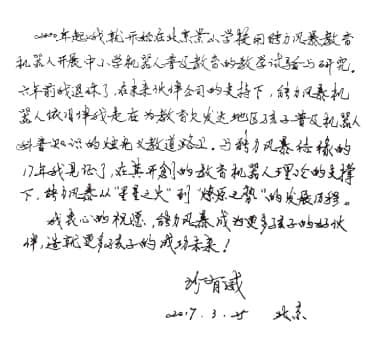 2000年起我就开始在北京景山学校用能力风暴教育
机器人开展中小学机器人普及教育的教学试验与研究。
六年前我退休了，在未来伙伴公司的支持下，能力风暴机
器人依旧伴我走在为教育欠发达地区孩子普及机器人
科普知识的 义教道路上。与能力风暴结缘的
17年我见证了，在其开创的教育机器人理论的支撑
下，能力风暴从“星星之火”到“燎原之势”的发展历程。
我衷心的祝愿，能力风暴成为更多孩子的好伙
伴，造就更多孩子的成功未来！
2017.3.25 北京